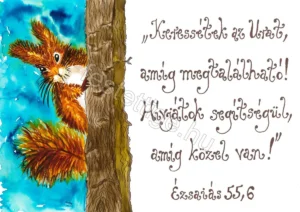 „Keressétek az Urat,
amíg megtalálható!
Hívjátok segítségül,
amíg közel van!"
Ézsaiás 55,6